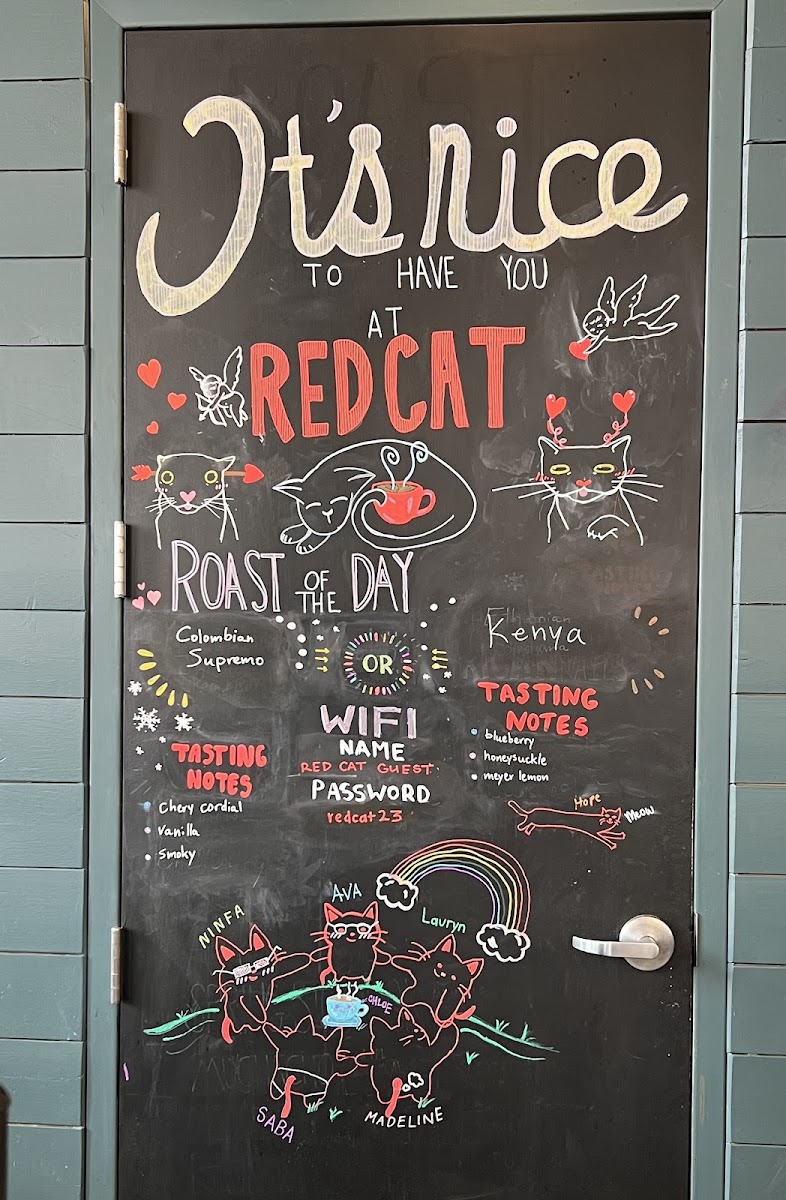 It's nice
TO HAVE YOU
AT
RED CAT
ROAST OF THE DAY
Colombian
Supremo
OR
Kenya
TASTING
NOTES
Chery cordial
vanilla
smoky
WIFI
NAME
RED CAT GUEST
PASSWORD
redcat23
TASTING
NOTES
blueberry
honeysuckle
meyer lemon
Hope
Meow
NINFA
AVA
Lauryn
CHLOE
SABA
MADELINE